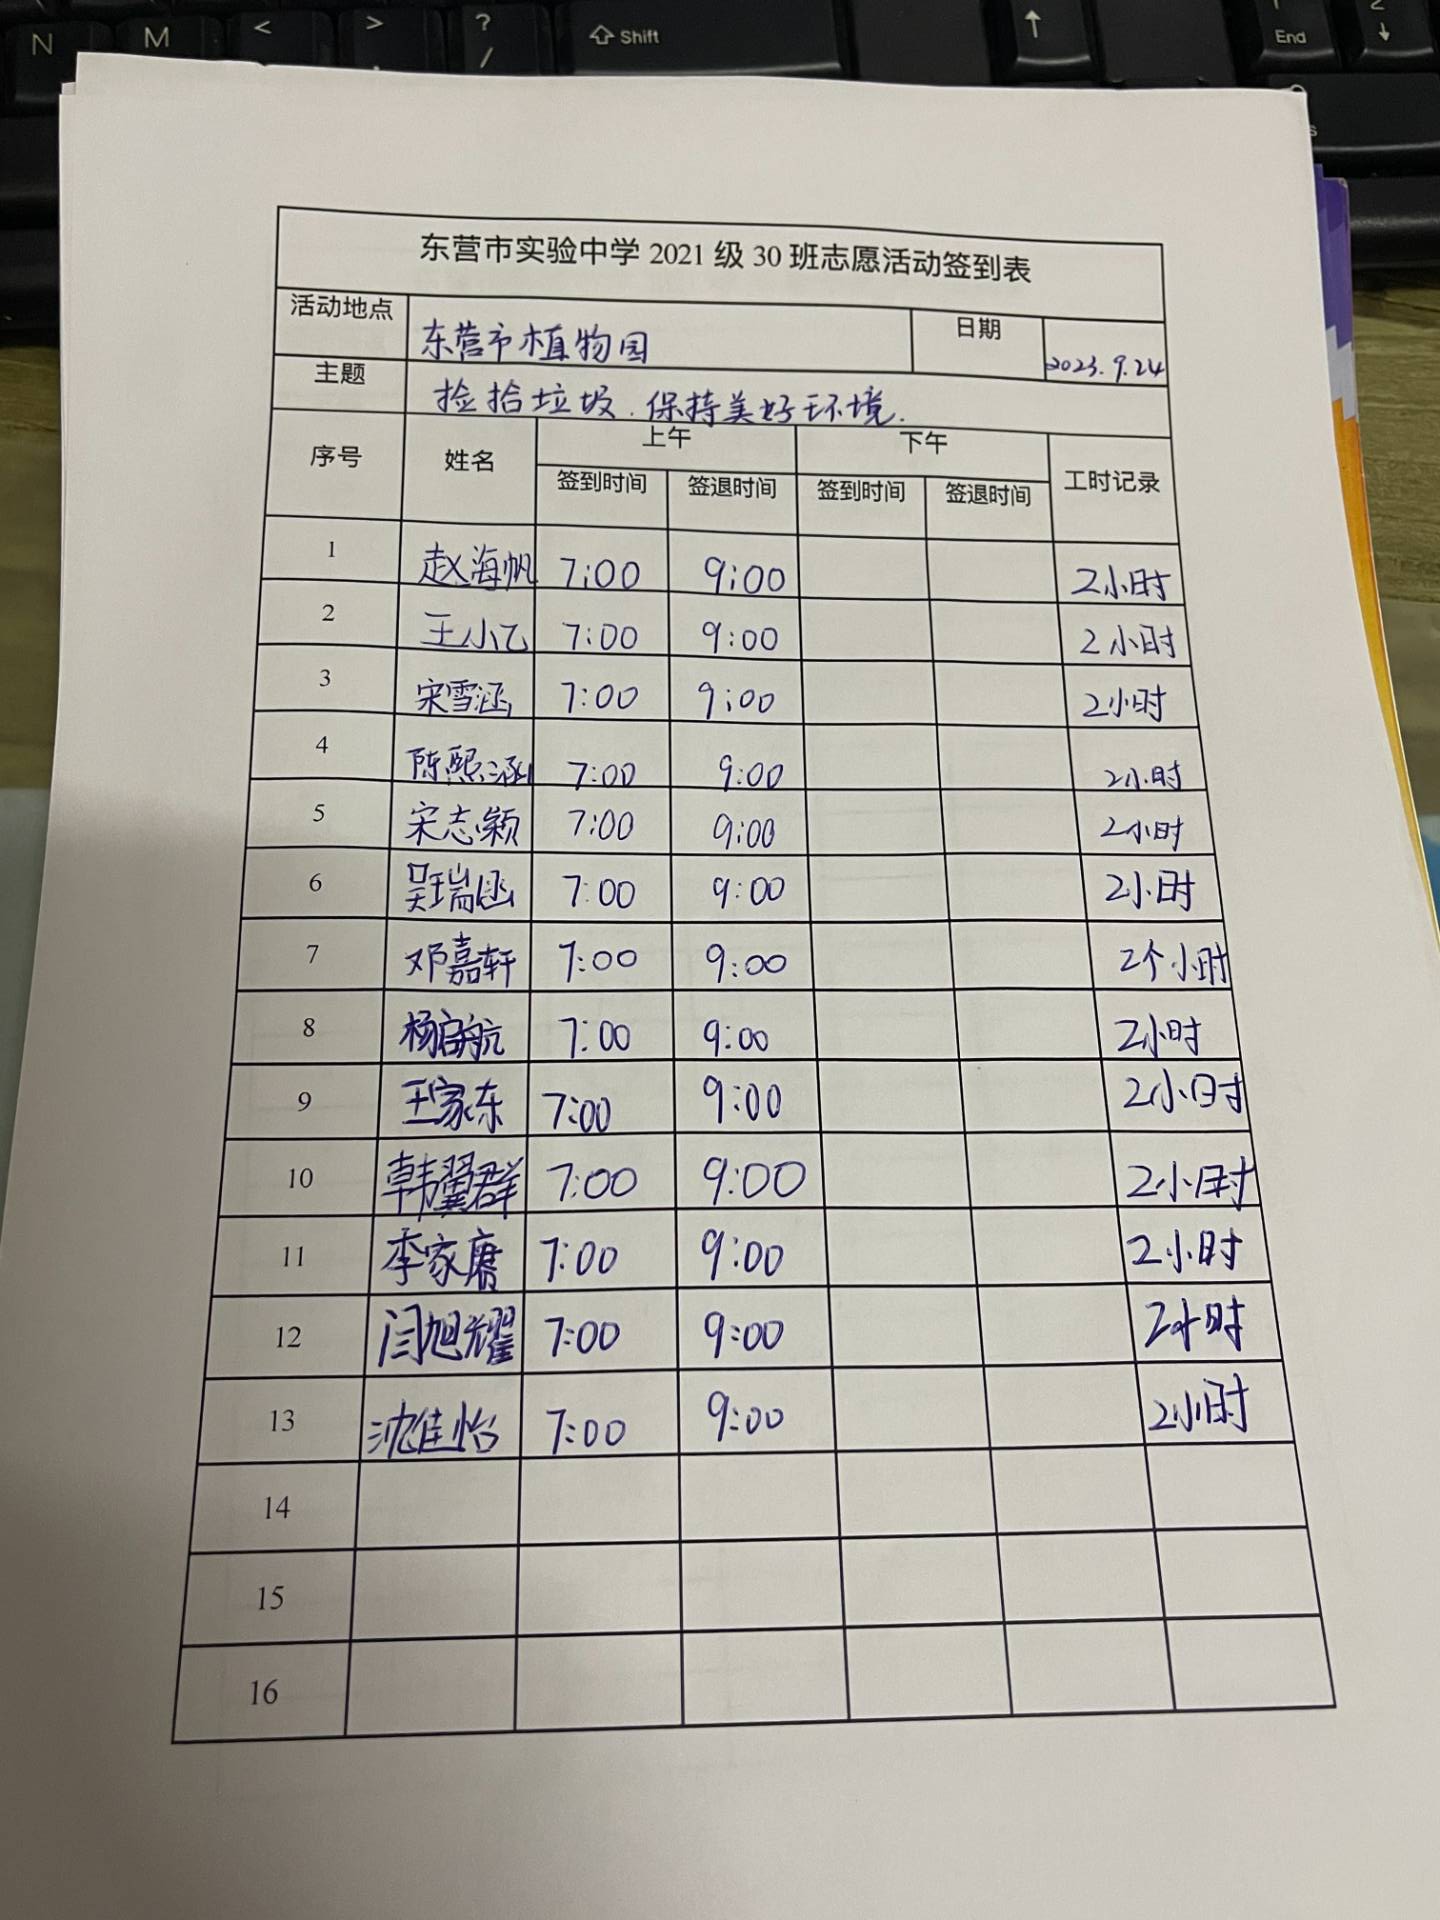 N M < > ? / Shift ↑ 1 End 2 ↓
东营市实验中学 2021 级 30 班志愿活动签到表
活动地点 东营市植物园 日期 2023.9.24
主题 捡拾垃圾.保持美好环境.
序号 姓名 上午 下午 工时记录
签到时间 签退时间 签到时间 签退时间
1 赵海帆 7:00 9:00 2小时
2 王小乙 7:00 9:00 2小时
3 宋雪涵 7:00 9:00 2小时
4 陈熙涵 7:00 9:00 2小时
5 宋志颖 7:00 9:00 2小时
6 吴瑞函 7:00 9:00 2小时
7 邓嘉轩 7:00 9:00 2个小时
8 杨启航 7:00 9:00 2小时
9 王家东 7:00 9:00 2小时
10 韩翼群 7:00 9:00 2小时
11 李家赓 7:00 9:00 2小时
12 闫旭耀 7:00 9:00 2小时
13 沈佳怡 7:00 9:00 2小时
14
15
16